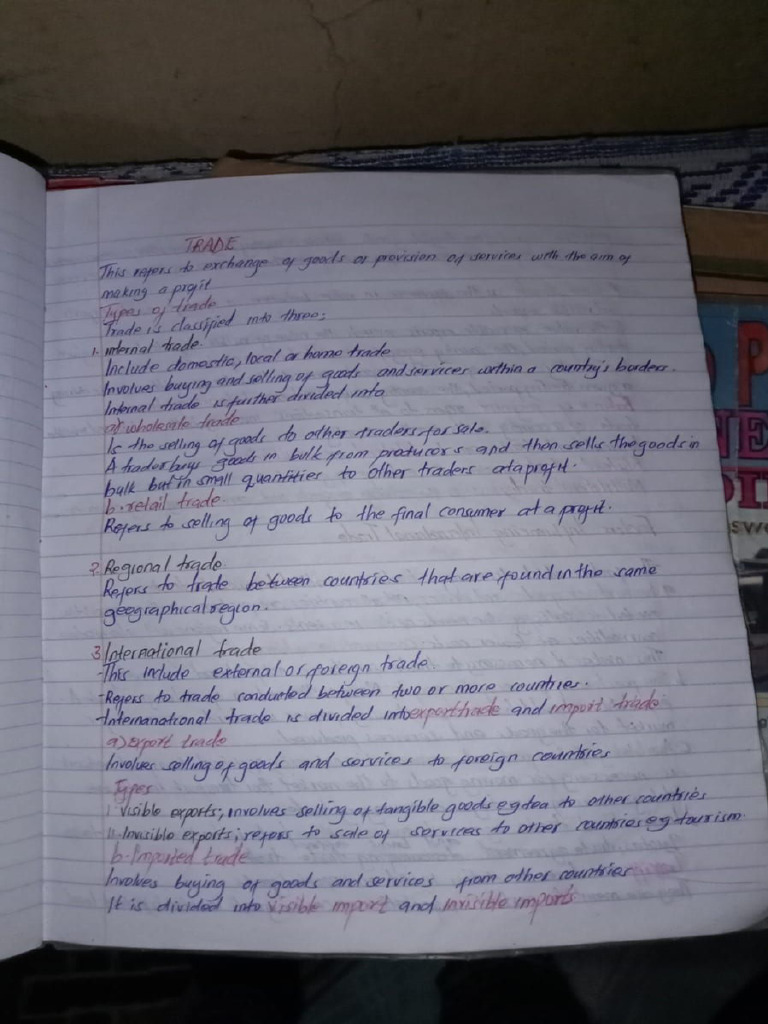 TRADE
This refers to exchange of goods or provision of services with the aim of
making a profit
Types of trade
Trade is classified into three;
1. internal trade
Include domestic, local or home trade
Involves buying and selling of goods and services within a country's borders.
Internal trade is further divided into
a) wholesale trade
Is the selling of goods to other traders for sale.
A trader buys goods in bulk from producers and then sells the goods in
bulk but in small quantities to other traders at a profit.
b. retail trade
Refers to selling of goods to the final consumer at a profit.
2. Regional trade
Refers to trade between countries that are found in the same
geographical region.
3 International trade
-This include external or foreign trade
-Refers to trade conducted between two or more countries.
-Internanational trade is divided into export trade and import trade
a) export trade
Involves selling of goods and services to foreign countries
Types
i Visible exports; involves selling of tangible goods eg tea to other countries
ii. Invisible exports; refers to sale of services to other countries eg tourism
b. Imported trade
Involves buying of goods and services from other countries
It is divided into visible import and invisible imports